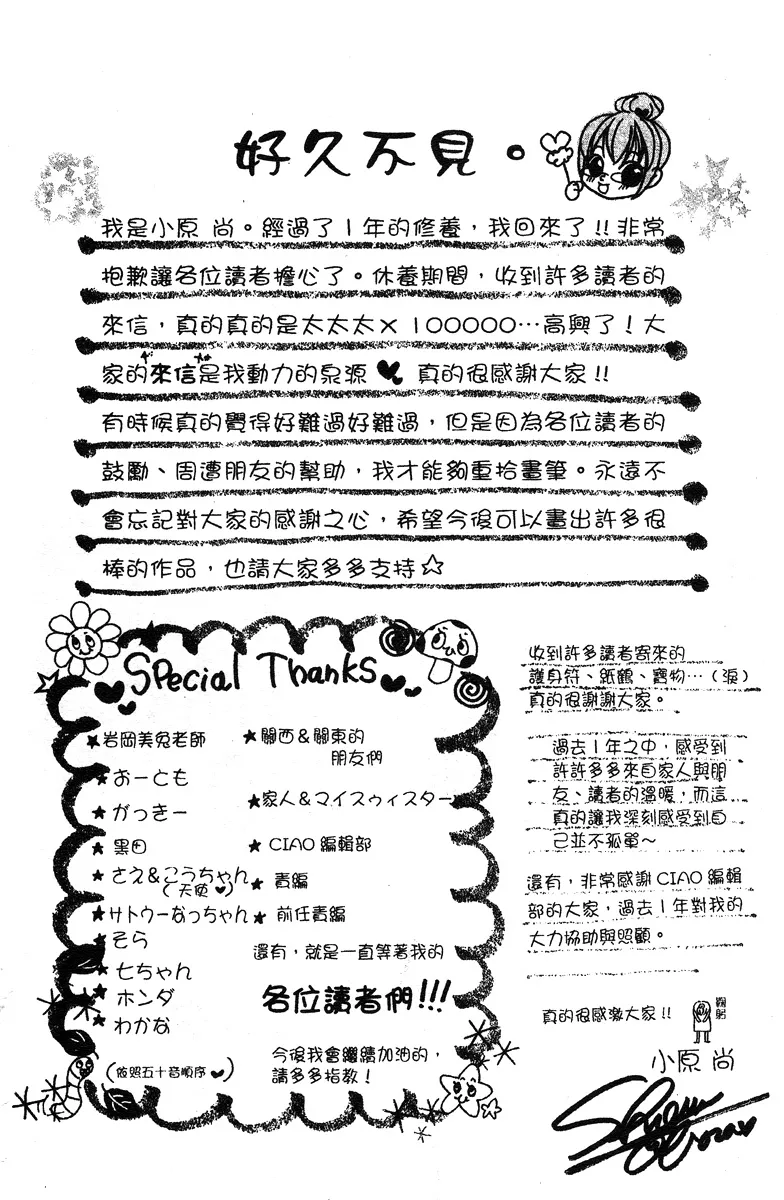 好久不見。
我是小原 尚。經過了1年的修養，我回來了!!非常
抱歉讓各位讀者擔心了。休養期間，收到許多讀者的
來信，真的真的是太太太×100000…高興了！大
家的來信是我動力的泉源♥ 真的很感謝大家!!
有時候真的覺得好難過好難過，但是因為各位讀者的
鼓勵、周遭朋友的幫助，我才能夠重拾畫筆。永遠不
會忘記對大家的感謝之心，希望今後可以畫出許多很
棒的作品，也請大家多多支持☆
Special Thanks
★岩岡美兔老師
★おーとも
★がっきー
★黑田
★さえ&こうちゃん
(天使♥)
★サトウーなっちゃん
★そら
★七ちゃん
★ホンダ
★わかな
(依照五十音順序♥)
★關西&關東的
朋友們
★家人&マイスウィスター
★CIAO編輯部
★責編
★前任責編
還有，就是一直等著我的
各位讀者們!!!
今後我會繼續加油的，
請多多指教！
收到許多讀者寄來的
護身符、紙鶴、寶物…（淚）
真的很謝謝大家。
過去1年之中，感受到
許許多多來自家人與朋
友、讀者的溫暖，而這
真的讓我深刻感受到自
己並不孤單～
還有，非常感謝CIAO編輯
部的大家，過去1年對我的
大力協助與照顧。
真的很感激大家!!
鞠躬
小原 尚